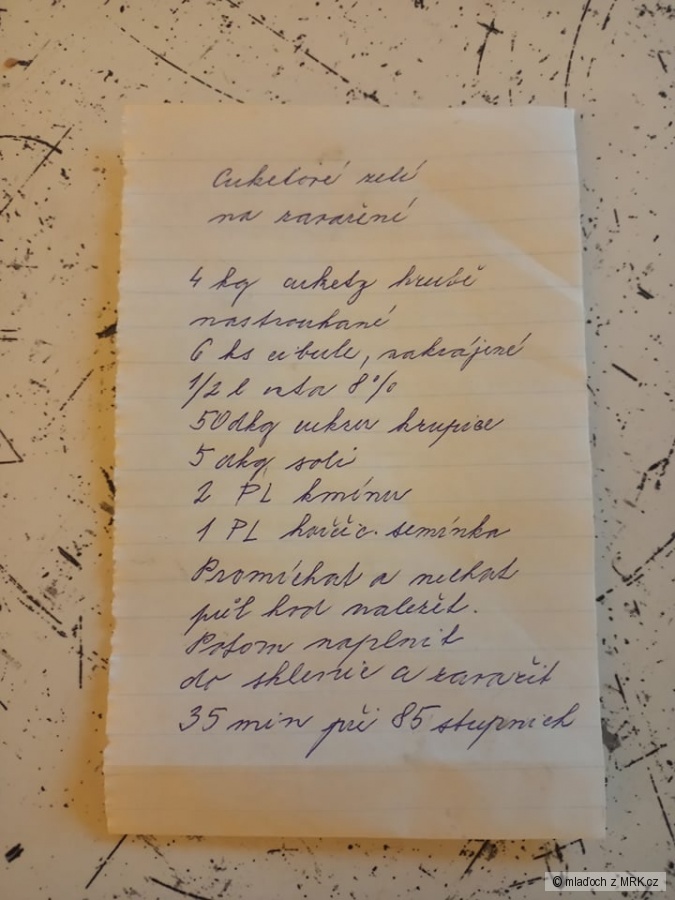 Cuketové zelí
na zavaření
4 kg cukety hrubě
nastrouhané
6 ks cibule, nakrájené
1/2 l octa 8%
50 dkg cukru krupice
5 dkg soli
2 PL kmínu
1 PL hořčič. semínka
Promíchat a nechat
půl hod naležet.
Potom naplnit
do sklenic a zavařit
35 min při 85 stupních
© mlaďoch z MRK.cz